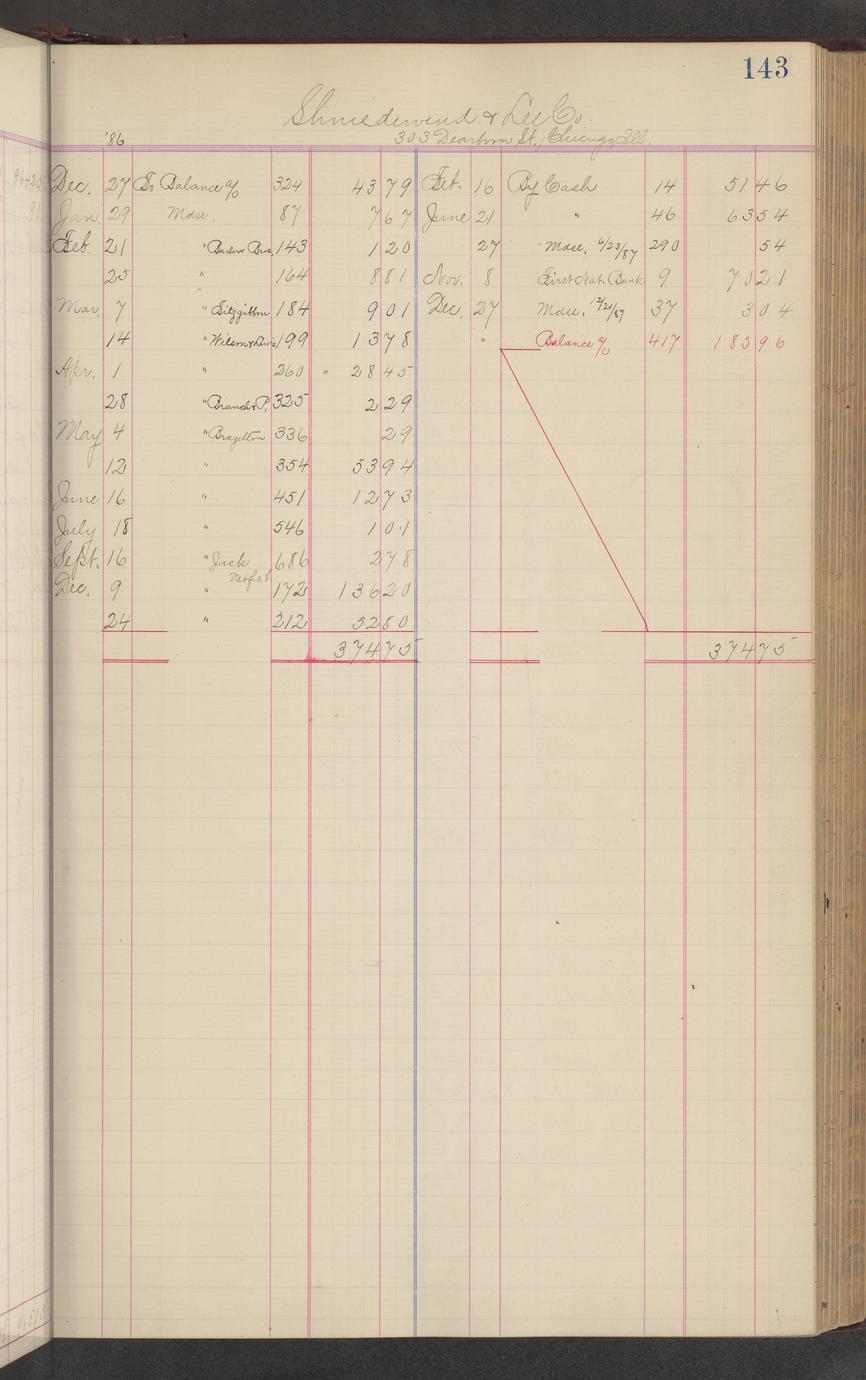 143
Shniedewend & Lee Co.
'86 303 Dearborn St., Chicago, Ill.
Dec. 27 To Balance a/c 324 43 79 Feb. 16 By Cash 14 51 46
Jan. 29 Mdse. 87 7 67 June 21 " 46 63 54
Feb. 21 " Barlow Bros. 143 1 20 27 Mdse. 6/23/87 290 54
25 " 164 8 81 Nov. 8 First Nat. Bank 9 70 21
Mar. 7 " Fitzgibbon 184 9 01 Dec. 27 Mdse. 12/21/87 37 3 04
14 " Wilson & 199 13 78 " Balance a/c 417 185 96
Apr. 1 " 260 28 45
28 " Branch & P. 325 2 29
May 4 " Brazelton 336 29
12 " 354 53 94
June 16 " 451 12 73
July 18 " 546 1 01
Sept. 16 " Jack 686 2 78
Dec. 9 " 172 136 20
24 " 212 52 80
374 75 374 75